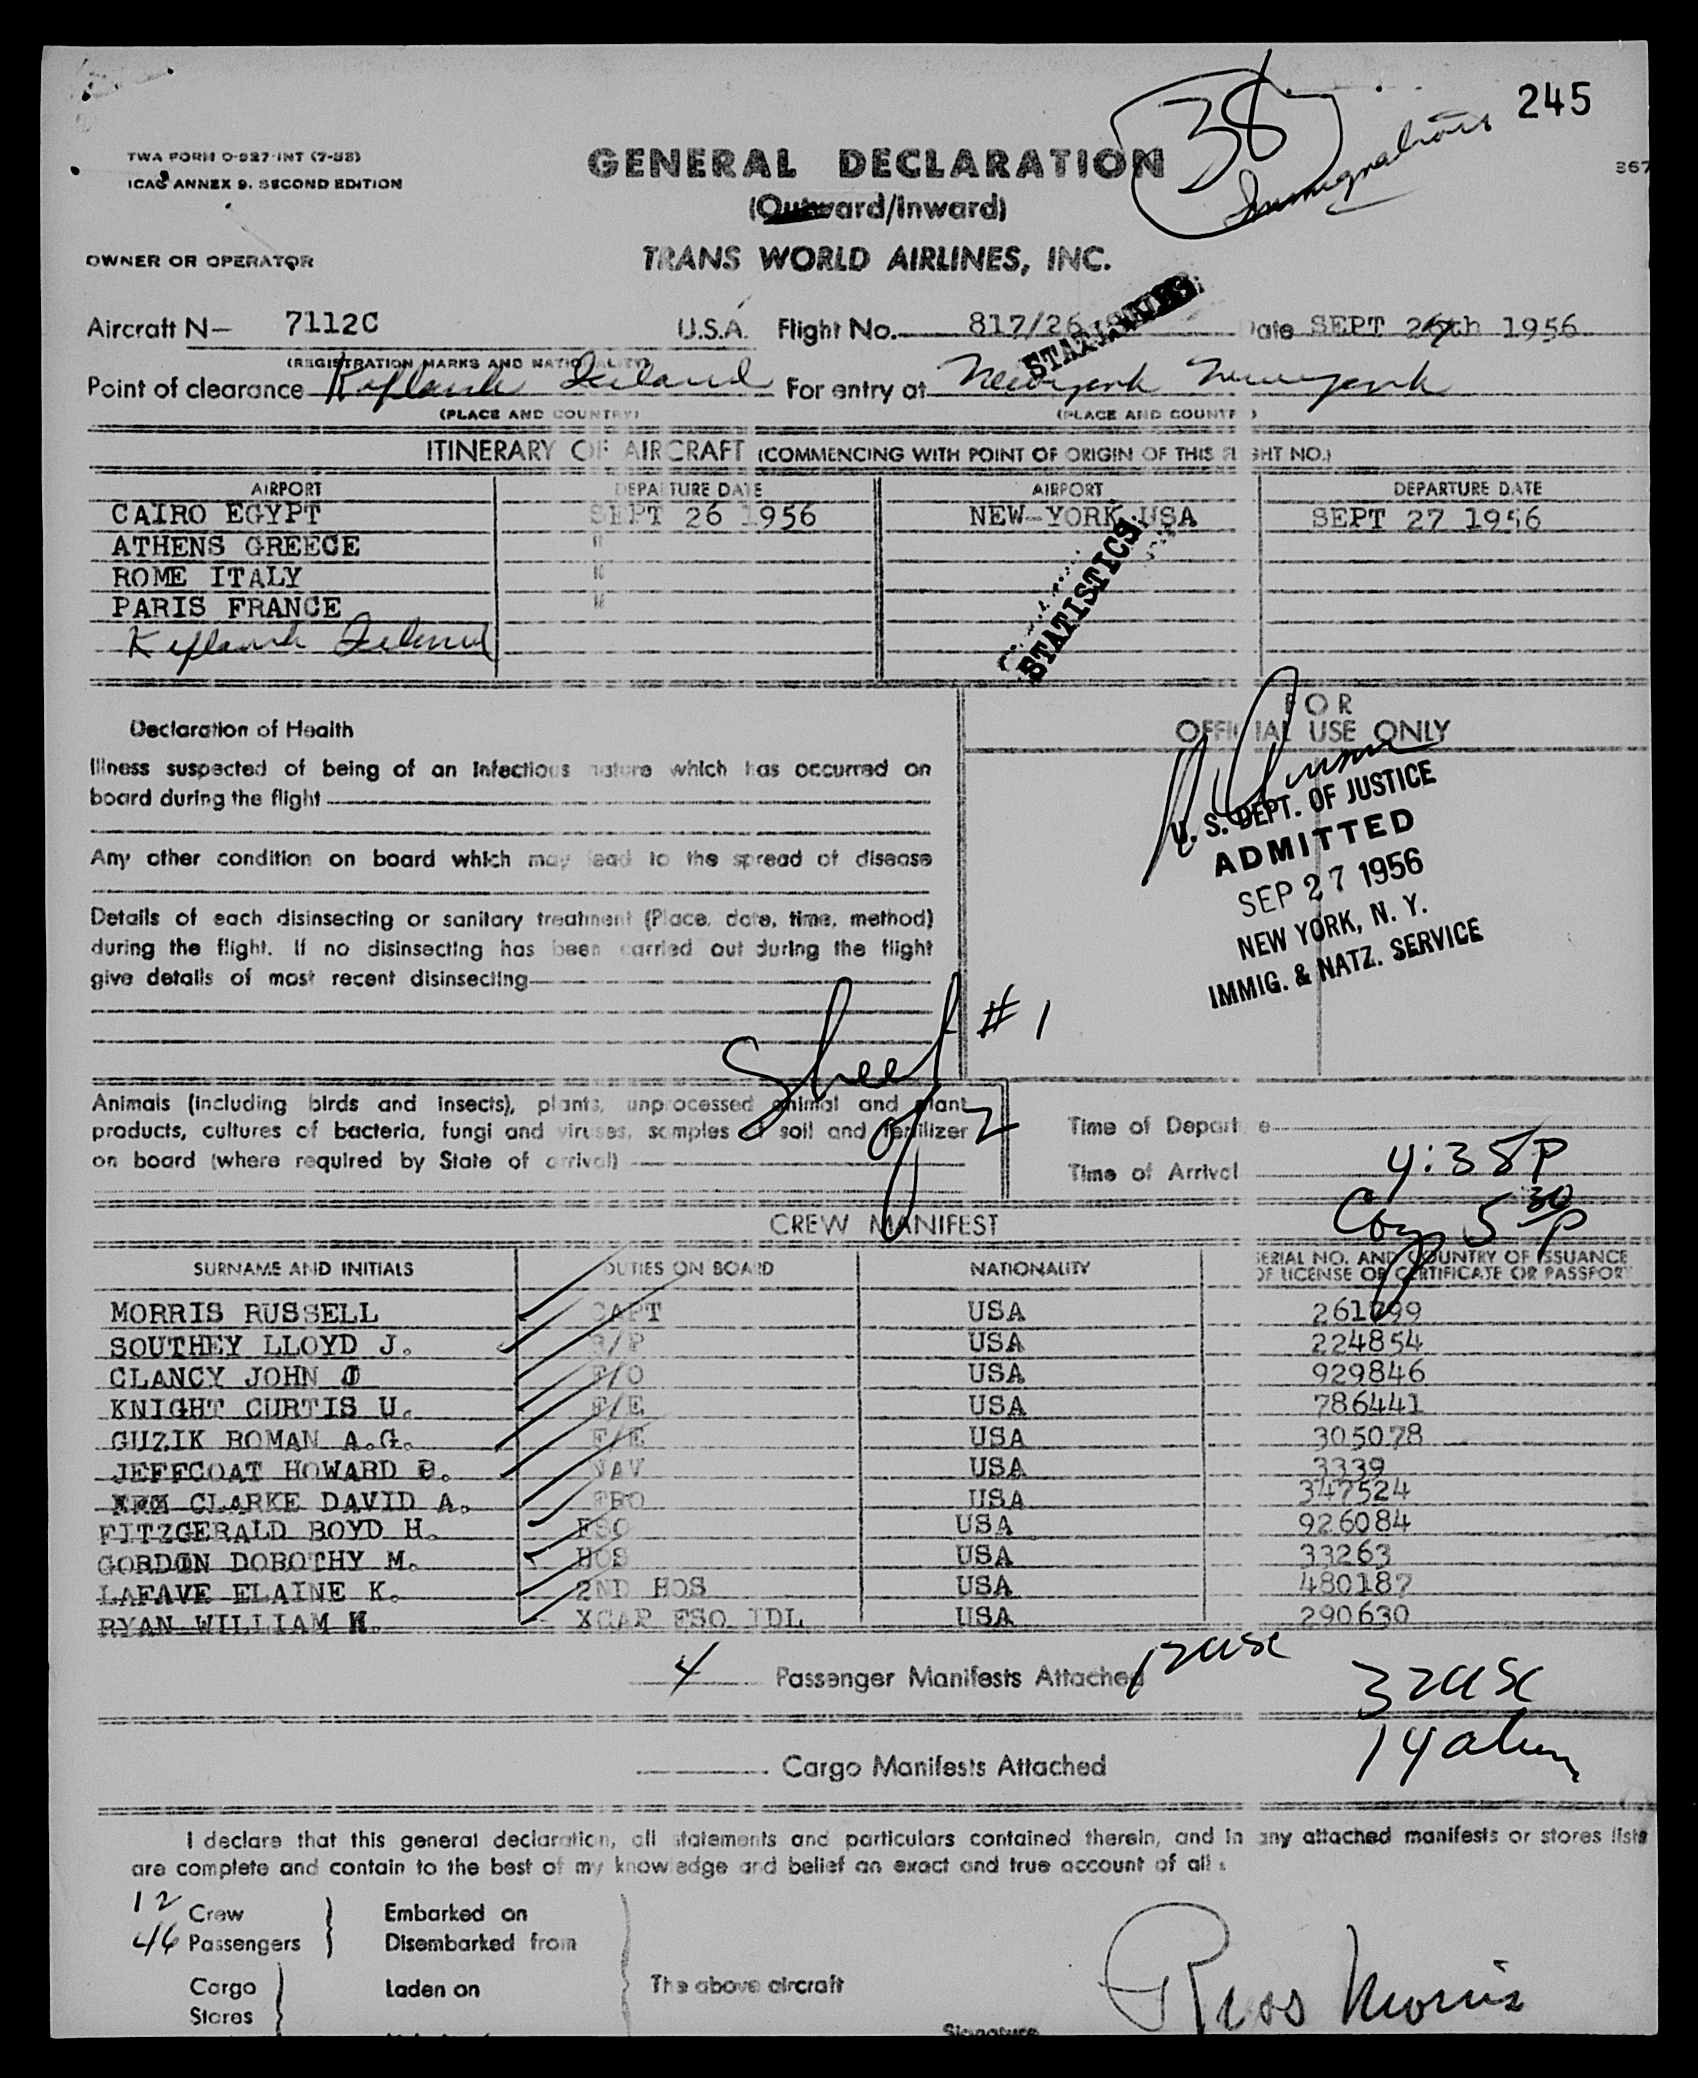 245
38
Immigration
TWA FORM O-927-INT (7-55)
ICAO ANNEX 9, SECOND EDITION
GENERAL DECLARATION
367
(Outward/Inward)
OWNER OR OPERATOR
TRANS WORLD AIRLINES, INC.
Aircraft N— 7112C U.S.A. Flight No. 817/26 Date SEPT 27th 1956
(REGISTRATION MARKS AND NATIONALITY)
STATISTICS
Point of clearance Keflavik Iceland For entry at New york New york
(PLACE AND COUNTRY) (PLACE AND COUNTRY)
ITINERARY OF AIRCRAFT (COMMENCING WITH POINT OF ORIGIN OF THIS FLIGHT NO.)
AIRPORT DEPARTURE DATE AIRPORT DEPARTURE DATE
CAIRO EGYPT SEPT 26 1956 NEW-YORK USA SEPT 27 1956
ATHENS GREECE "
ROME ITALY "
PARIS FRANCE "
Keflavik Iceland
STATISTICS
Declaration of Health
Illness suspected of being of an infectious nature which has occurred on
board during the flight
Any other condition on board which may lead to the spread of disease
Details of each disinsecting or sanitary treatment (Place, date, time, method)
during the flight. If no disinsecting has been carried out during the flight
give details of most recent disinsecting
FOR
OFFICIAL USE ONLY
U. S. DEPT. OF JUSTICE
ADMITTED
SEP 27 1956
NEW YORK, N. Y.
IMMIG. & NATZ. SERVICE
Sheet #1
of 2
Animals (including birds and insects), plants, unprocessed animal and plant
products, cultures of bacteria, fungi and viruses, samples of soil and fertilizer
on board (where required by State of arrival)
Time of Departure
Time of Arrival 4:38P
5 30/P
CREW MANIFEST
SURNAME AND INITIALS DUTIES ON BOARD NATIONALITY SERIAL NO. AND COUNTRY OF ISSUANCE
OF LICENSE OR CERTIFICATE OR PASSPORT
MORRIS RUSSELL CAPT USA 261299
SOUTHEY LLOYD J. R/P USA 224854
CLANCY JOHN J F/O USA 929846
KNIGHT CURTIS U. F/E USA 786441
GUZIK ROMAN A.G. F/E USA 305078
JEFFCOAT HOWARD D. NAV USA 3339
CLARKE DAVID A. FRO USA 347524
FITZGERALD BOYD H. FSO USA 926084
GORDON DOROTHY M. HOS USA 33263
LAFAVE ELAINE K. 2ND HOS USA 480187
RYAN WILLIAM H. XCAR FSO IDL USA 290630
4 Passenger Manifests Attached 12 usc
32 usc
14 alien
Cargo Manifests Attached
I declare that this general declaration, all statements and particulars contained therein, and in any attached manifests or stores lists
are complete and contain to the best of my knowledge and belief an exact and true account of all
12 Crew Embarked on
46 Passengers Disembarked from
Cargo Laden on The above aircraft
Stores
Ross Morris
Signature